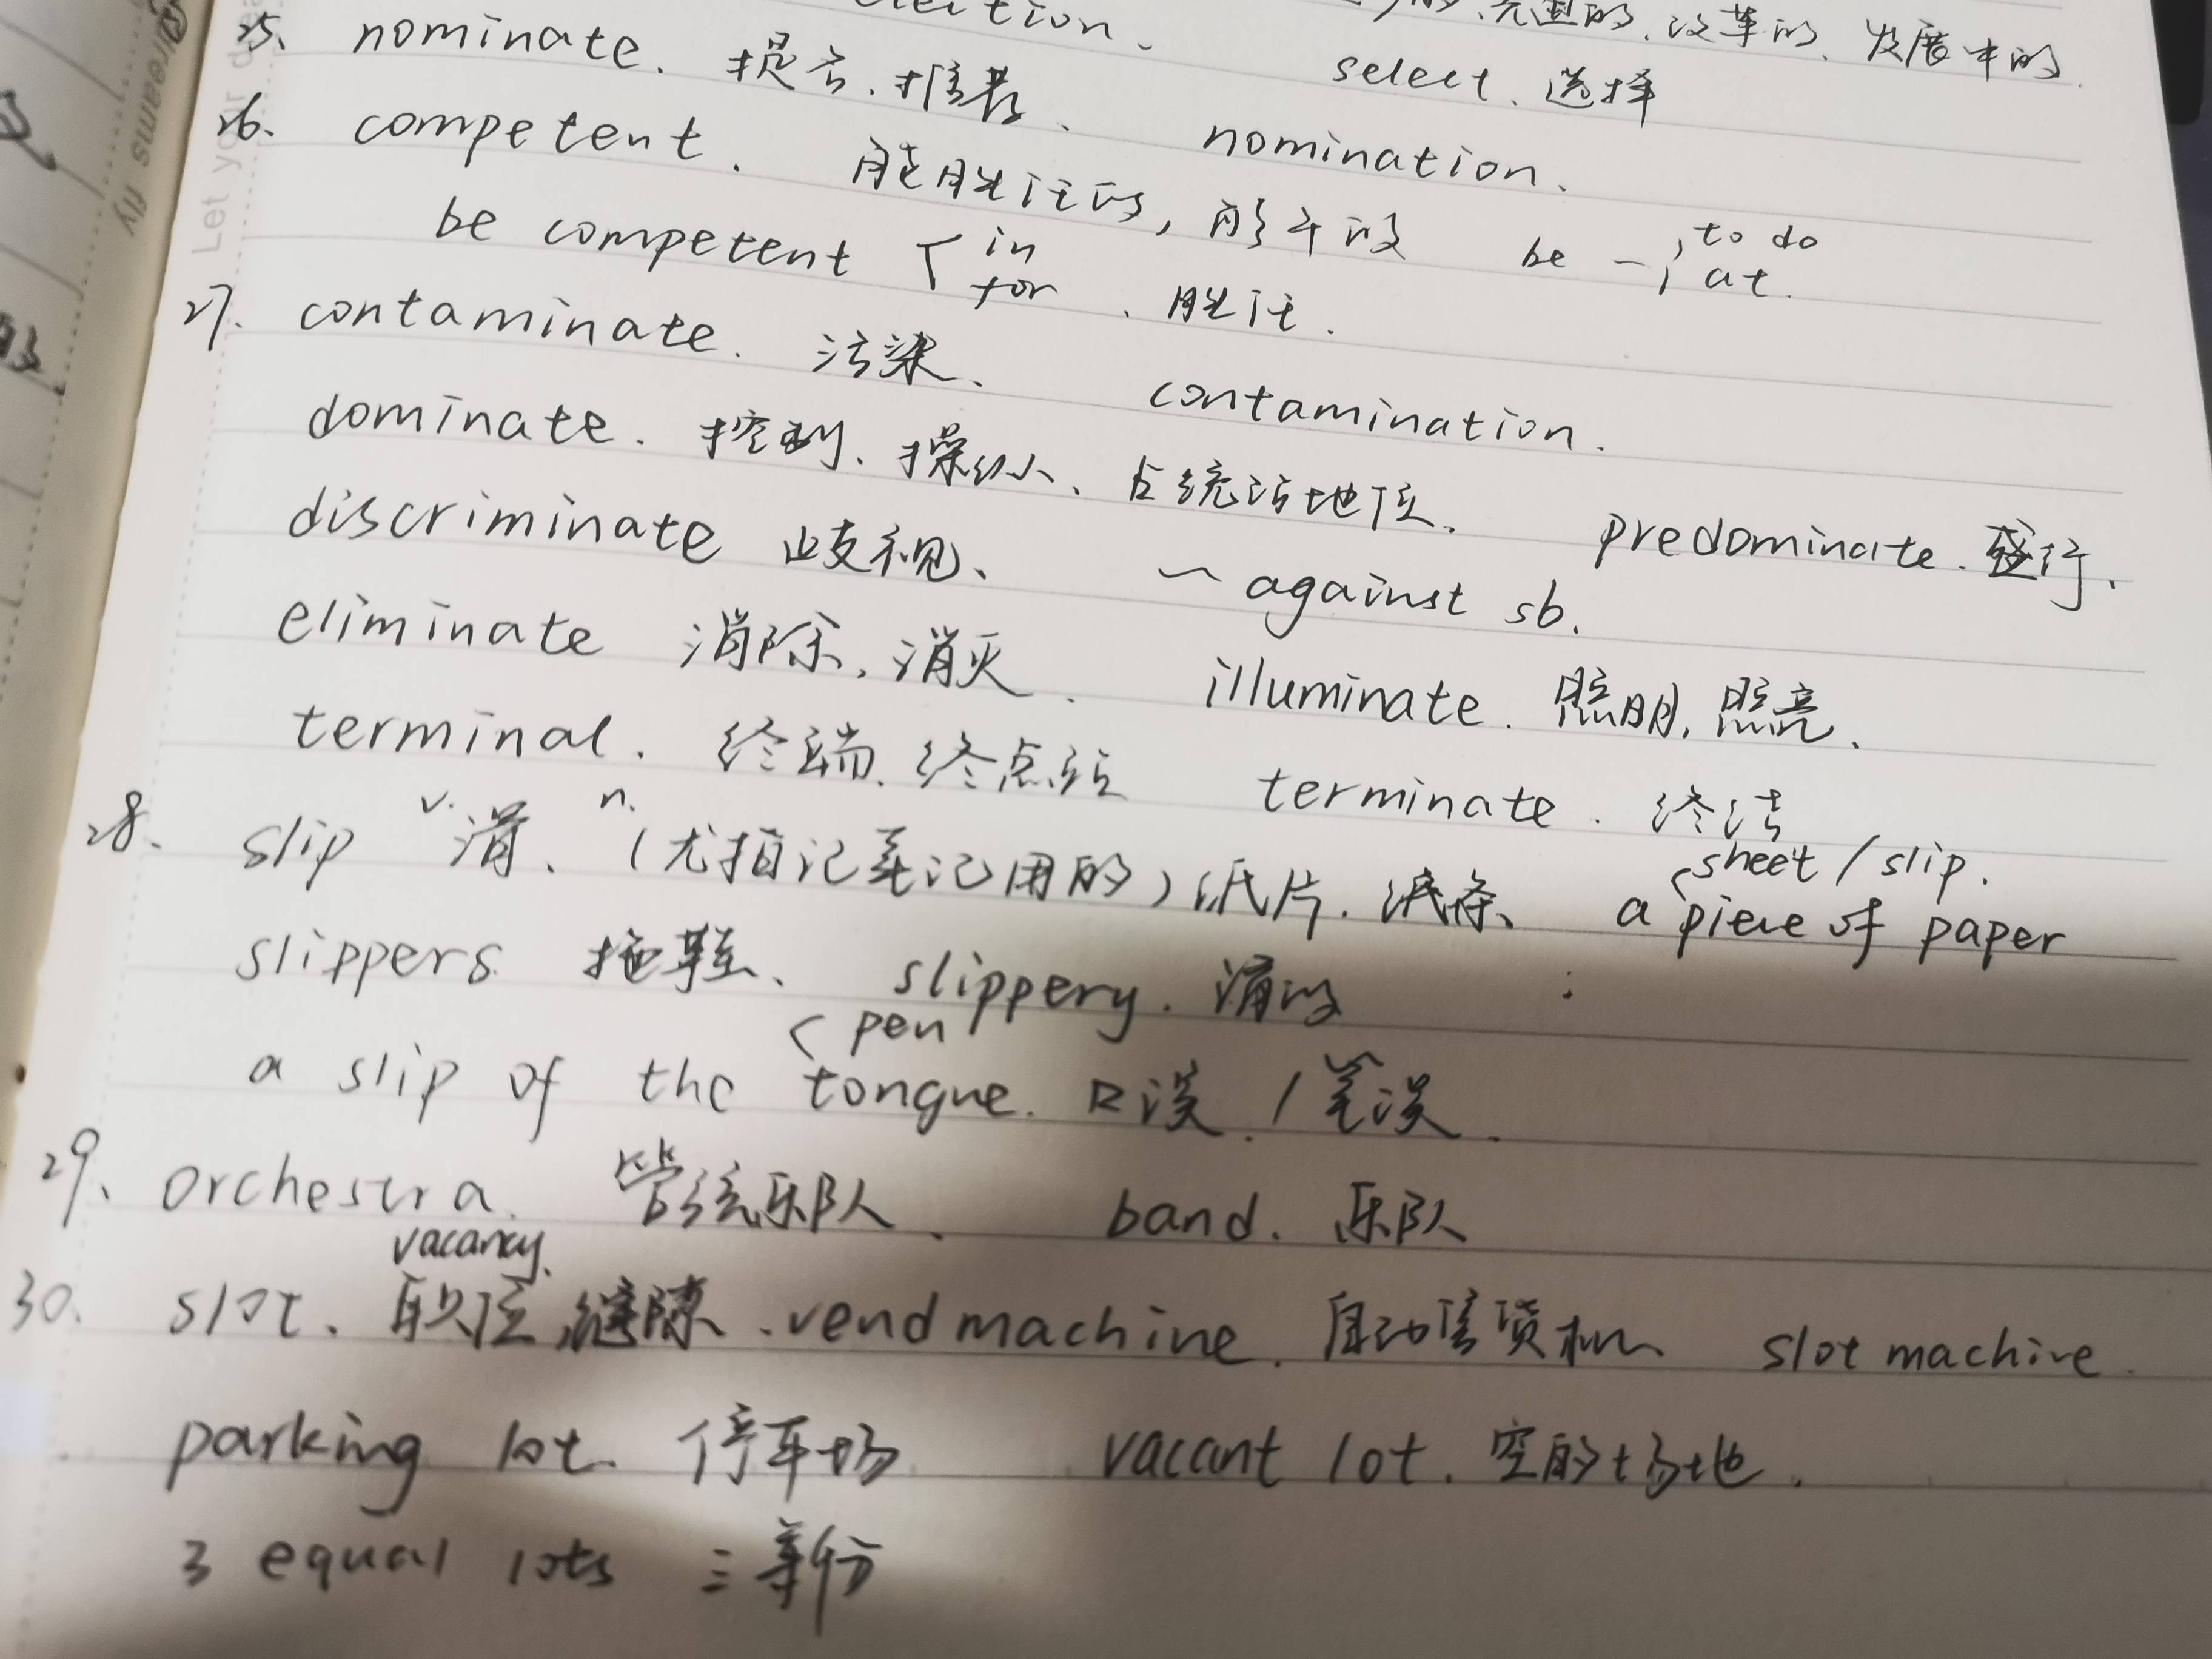 select、选择
25、nominate. 提名、推荐、 nomination.
26. competent. 能胜任的, 能干的 be – to do
at.
be competent in
for 、胜任.
27. contaminate. 污染、 contamination.
dominate. 控制、操纵、占统治地位. predominate. 盛行、
discriminate 歧视、 ~ against sb.
eliminate 消除, 消灭. illuminate. 照明, 照亮、
terminal. 终端. 终点站 terminate. 终结
28. slip v. 滑、n. (尤指记笔记用的) 纸片. 纸条、 a piece of paper
sheet / slip.
slippers 拖鞋、 slippery. 滑的
pen
a slip of the tongue. 口误. / 笔误.
29、orchestra. 管弦乐队、 band. 乐队
vacancy.
30. slot、职位, 缝隙、vend machine. 自动售货机 slot machine.
parking lot. 停车场 vacant lot. 空的场地.
3 equal lots 三等份
Let your
fly